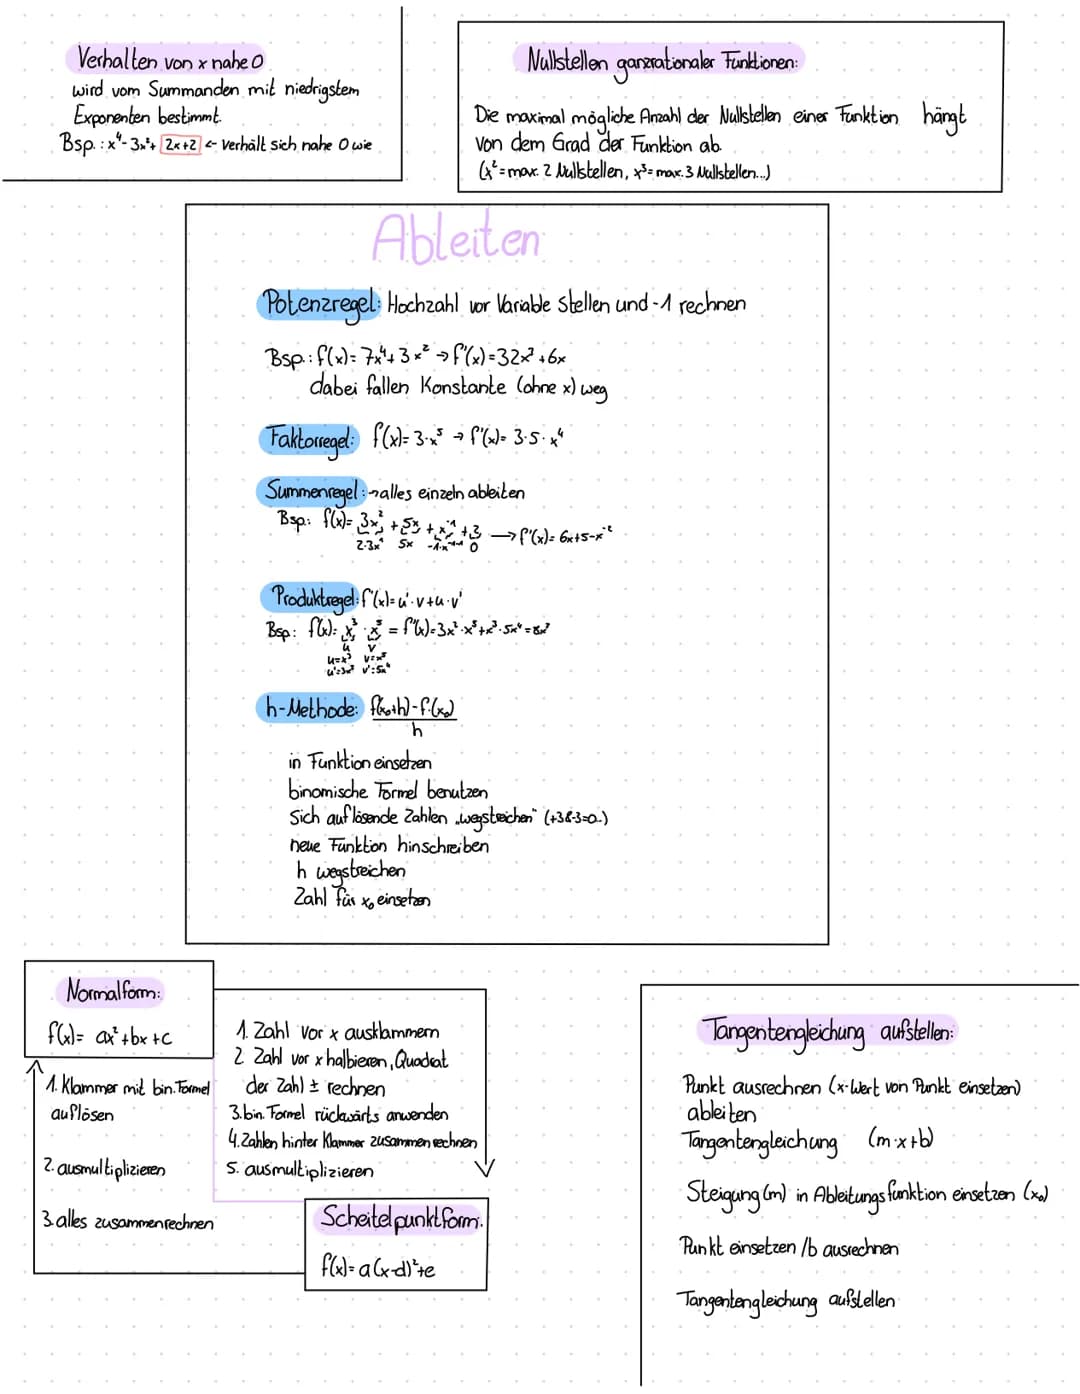 Verhalten von x nahe 0
wird vom Summanden mit niedrigstem
Exponenten bestimmt.
Bsp.: x⁴-3x²+ 2x+2 ← verhält sich nahe 0 wie
Nullstellen ganzrationaler Funktionen:
Die maximal mögliche Anzahl der Nullstellen einer Funktion hängt
von dem Grad der Funktion ab.
(x²=max. 2 Nullstellen, x³=max. 3 Nullstellen...)
Ableiten
Potenzregel: Hochzahl vor Variable stellen und -1 rechnen
Bsp.: f(x)= 7x⁴+3x² → f'(x)=32x³+6x
dabei fallen Konstante (ohne x) weg
Faktorregel: f(x)= 3·x⁵ → f'(x)= 3·5·x⁴
Summenregel: → alles einzeln ableiten
Bsp: f(x)= 3x² + 5x + x⁻¹ + 3 → f'(x)= 6x+5-x⁻²
2·3x¹ 5x -1·x⁻¹⁻¹ 0
Produktregel: f'(x)=u'·v+u·v'
Bsp: f(x)= x³ · x⁵ = f'(x)=3x²·x⁵+x³·5x⁴=8x⁷
u v
u=x³ v=x⁵
u'=3x² v'=5x⁴
h-Methode: f(x₀+h)-f(x₀)
h
in Funktion einsetzen
binomische Formel benutzen
Sich auflösende Zahlen „wegstreichen" (+3&-3=0..)
neue Funktion hinschreiben
h wegstreichen
Zahl für x₀ einsetzen
Normalform:
f(x)= ax²+bx+c
1. Klammer mit bin. Formel
auflösen
2. ausmultiplizieren
3. alles zusammenrechnen
1. Zahl vor x ausklammern
2 Zahl vor x halbieren, Quadrat
der Zahl ± rechnen
3. bin. Formel rückwärts anwenden
4. Zahlen hinter Klammer zusammen rechnen
5. ausmultiplizieren
Scheitelpunktform.
f(x)= a(x-d)²+e
Tangentengleichung aufstellen:
Punkt ausrechnen (x-Wert von Punkt einsetzen)
ableiten
Tangentengleichung (m·x+b)
Steigung (m) in Ableitungsfunktion einsetzen (x₀)
Punkt einsetzen /b ausrechnen
Tangentengleichung aufstellen